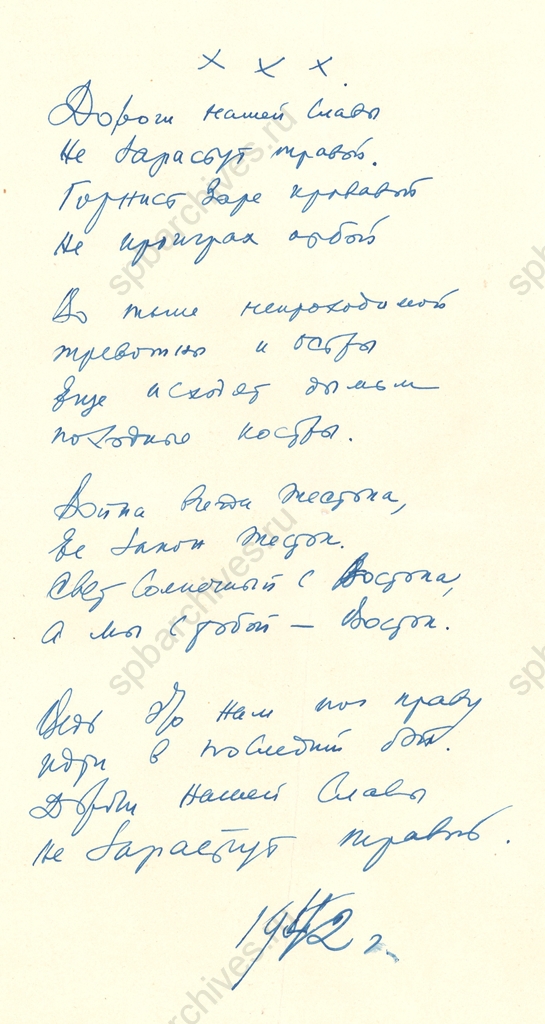 х х х.
Дороги нашей Славы
Не зарастут травой.
Горнист Заре кровавой
Не проиграл отбой
Во тьме непроходимой
тревожны и остры
Еще исходят дымом
походные костры.
Война всегда Жестока,
Ее Закон Жесток.
Свет Солнечный с Востока,
А мы с тобой – Восток.
Ведь это нам по праву
идти в последний бой.
Дороги нашей Славы
Не Зарастут травой.
1942 г.
spbarchives.ru
spbarchives.ru